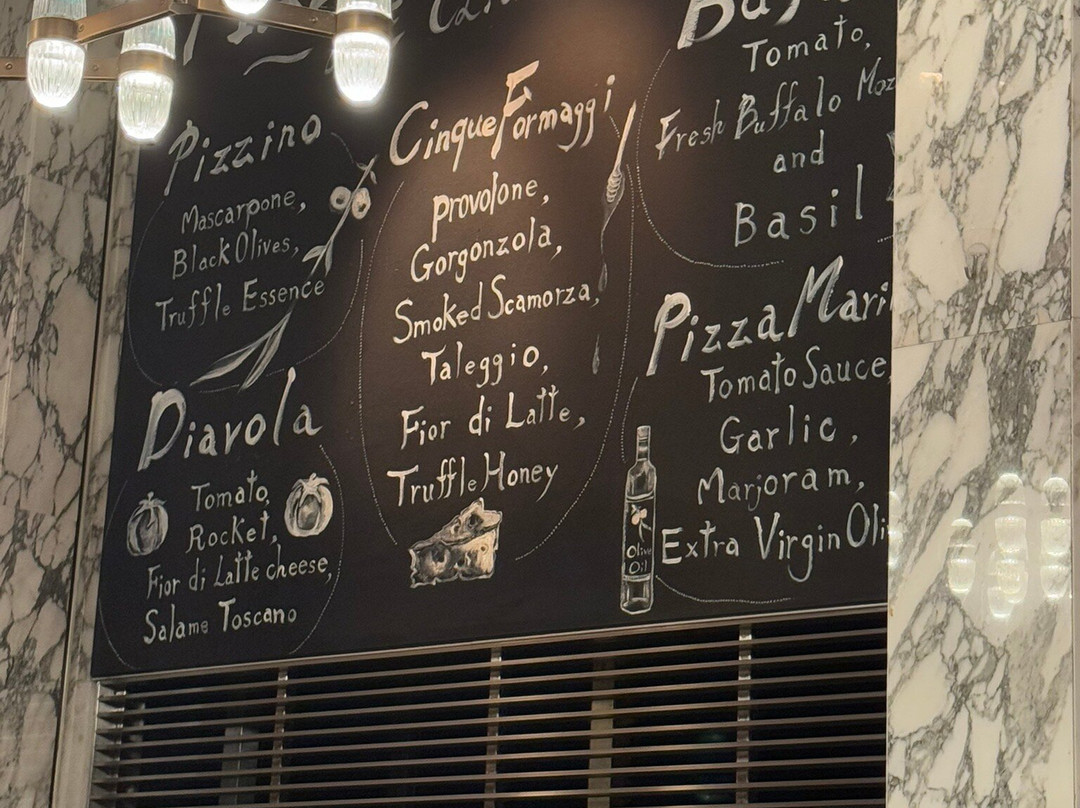 Pizzino
Mascarpone,
Black Olives,
Truffle Essence
Diavola
Tomato,
Rocket,
Fior di Latte cheese,
Salame Toscano
Cinque Formaggi
Provolone,
Gorgonzola,
Smoked Scamorza,
Taleggio,
Fior di Latte,
Truffle Honey
Tomato,
Fresh Buffalo Moz
and
Basil
Pizza Mari
Tomato Sauce,
Garlic,
Marjoram,
Extra Virgin Oli
Olive
Oil